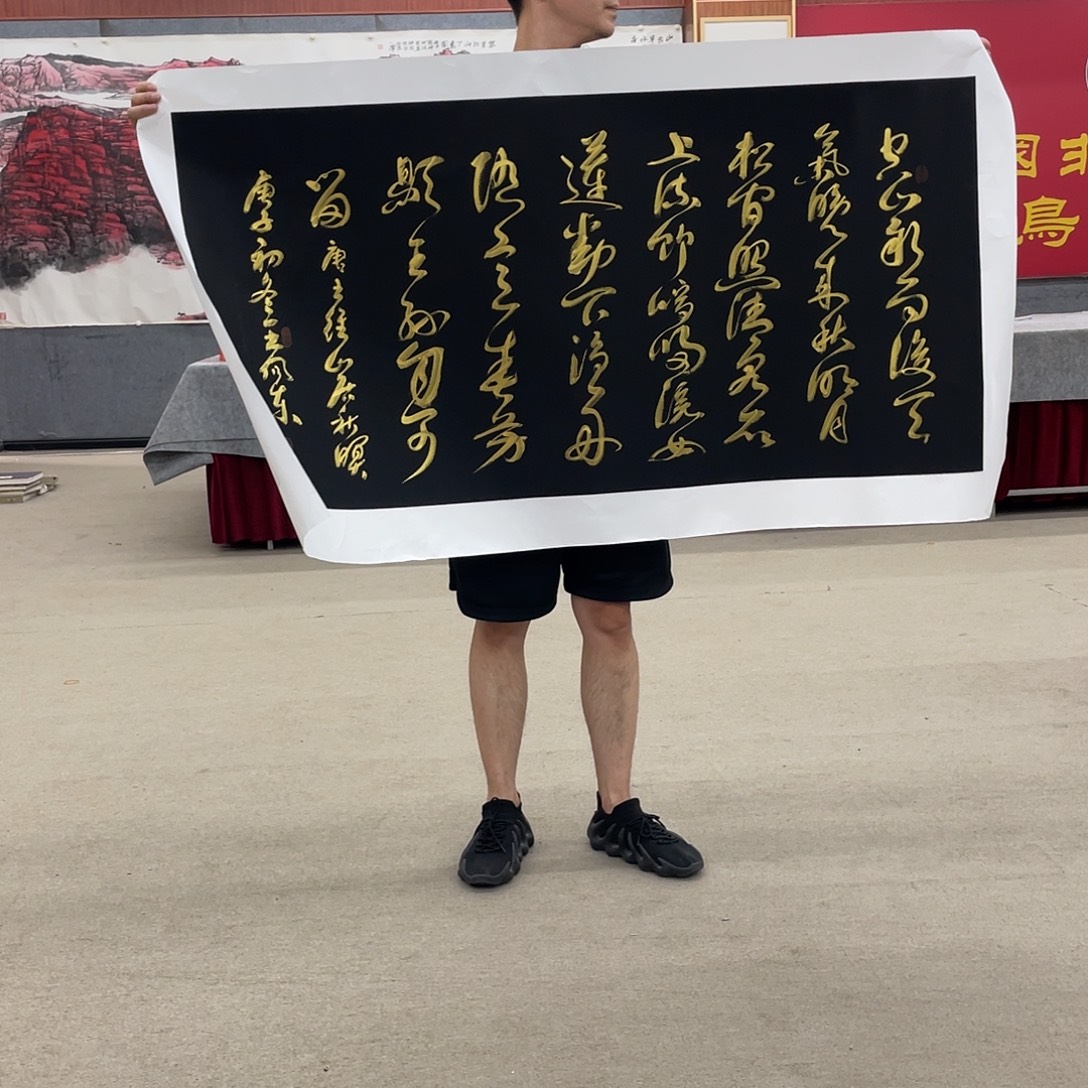 空山新雨後天
氣晚來秋明月
松間照清泉石
上流竹喧歸浣女
蓮動下漁舟
隨意春芳
歇王孫自可
留 唐王維山居秋暝
庚子初冬
國非
鳥